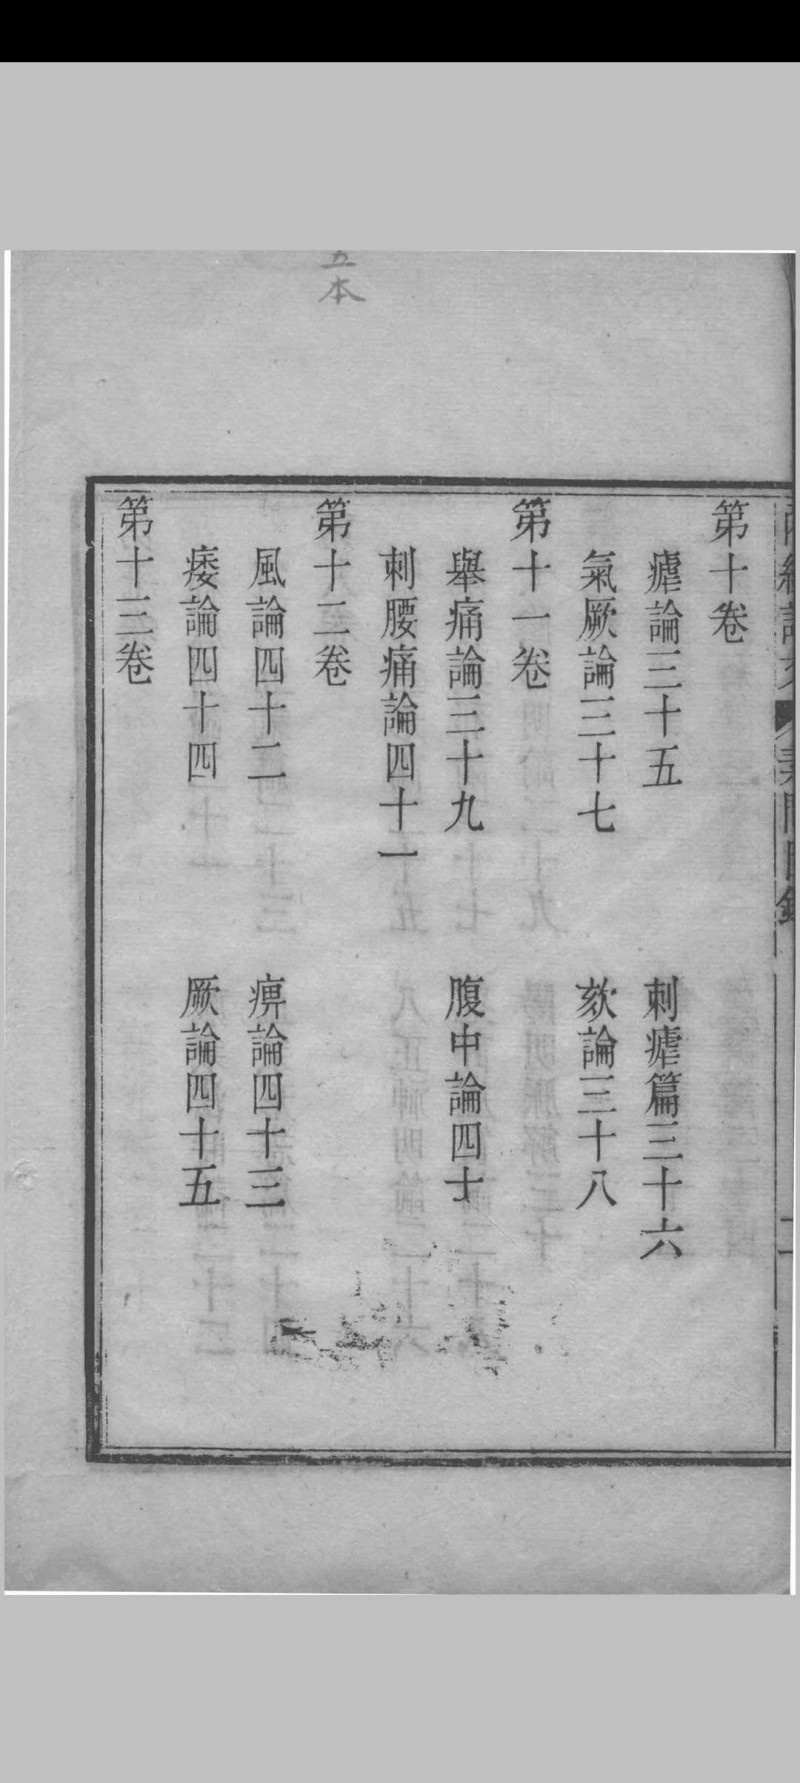 本
第十卷
瘧論三十五　刺瘧篇三十六
氣厥論三十七　欬論三十八
第十一卷
舉痛論三十九　腹中論四十
刺腰痛論四十一
第十二卷
風論四十二　痹論四十三
痿論四十四　厥論四十五
第十三卷